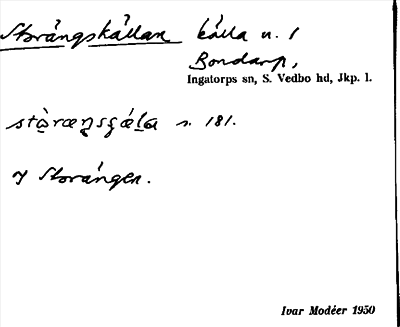 Storängskällan källa n. 1
Bondarp,
Ingatorps sn, S. Vedbo hd, Jkp. l.
s. 181.
Storängen.
Ivar Modéer 1950